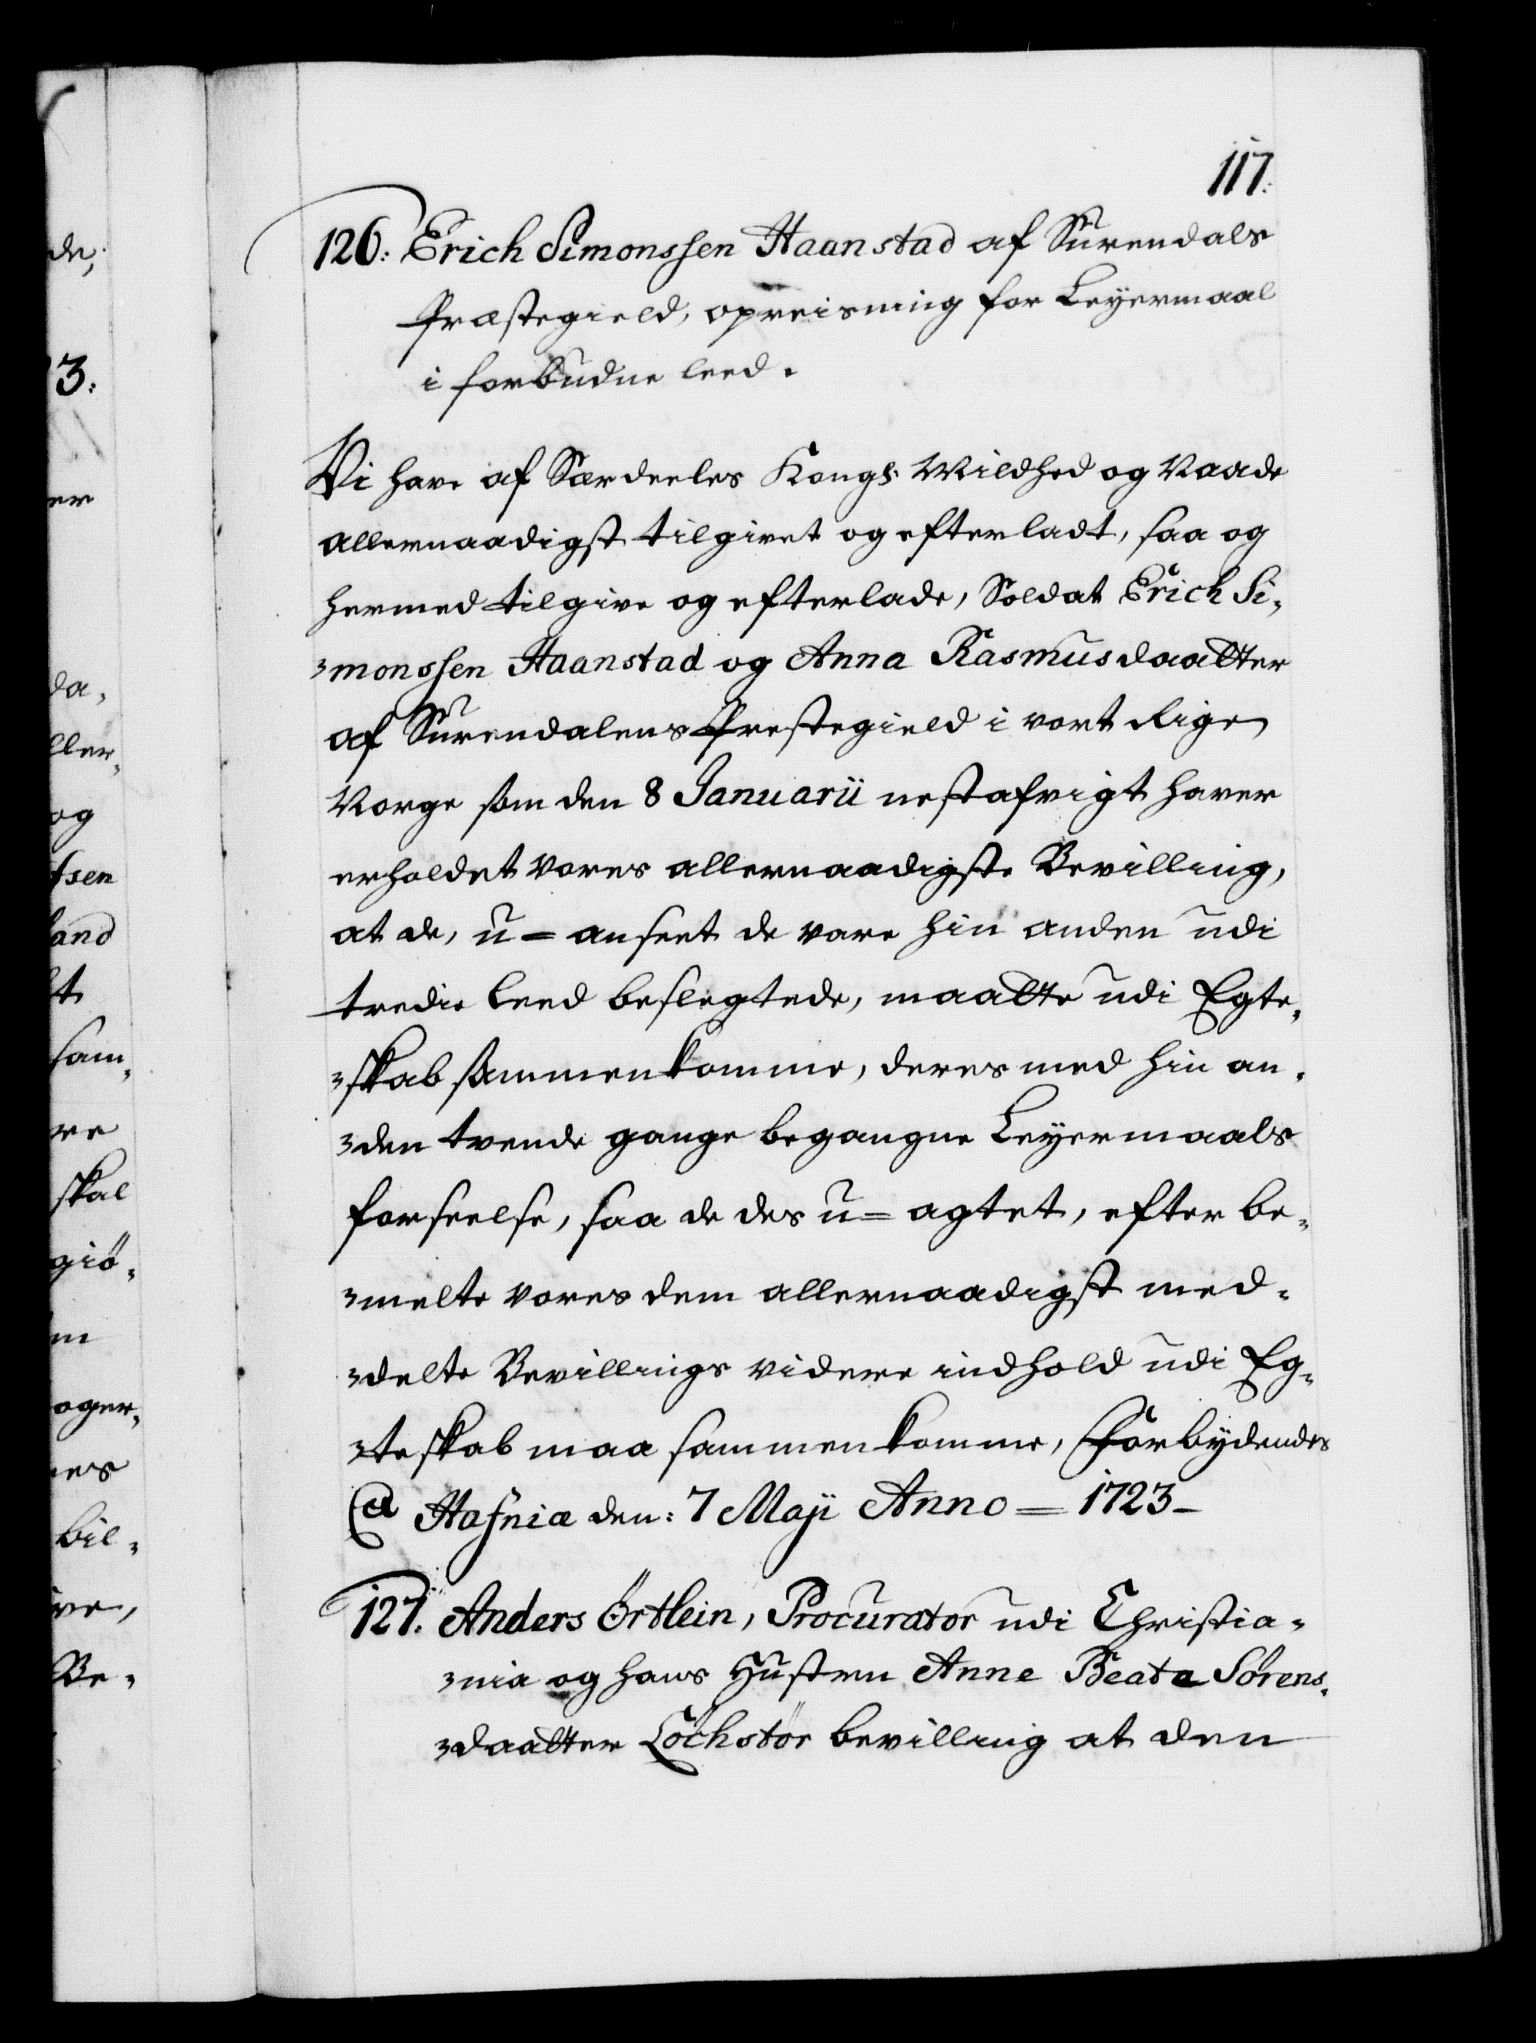 117.
126: Erich Simonssen Haanstad af Surendals
Præstegield, opreisning for Leyermaal
i forbudne leed.
Vi have af Særdeeles Kongl: Mildhed og Naade
allernaadigst tilgivet og efterladt, saa og
hermed tilgive og efterlade, Soldat Erich Si-
monssen Haanstad og Anna Rasmusdaatter
af Surendalens Prestegield i vort Rige
Norge som den 8 Januarii nestafvigt haver
erholdet vores allernaadigste Bevilling,
at de, u=anseet de vare hin anden udi
tredie leed beslegtede, maatte udi Egte-
skab sammenkomme, deres med hin an-
den tvende gange begangne Leyermaals
forseelse, saa de des u=agtet, efter be-
melte vores dem allernaadigst med-
delte Bevillings videre indhold udi Eg-
teskab maa sammenkomme, Forbydendes
Hafniæ den: 7 Maji Anno = 1723-
127. Anders Örtlein, Procurator udi Christia-
nia og hans Hustrue Anne Beata Sörens-
daatter Löchstör bevilling at den
de,
3:
er
da,
ller,
og
sen
land
t
sam,
re
skal
giö,
m
oger,
nes
bil,
ive,
Be,